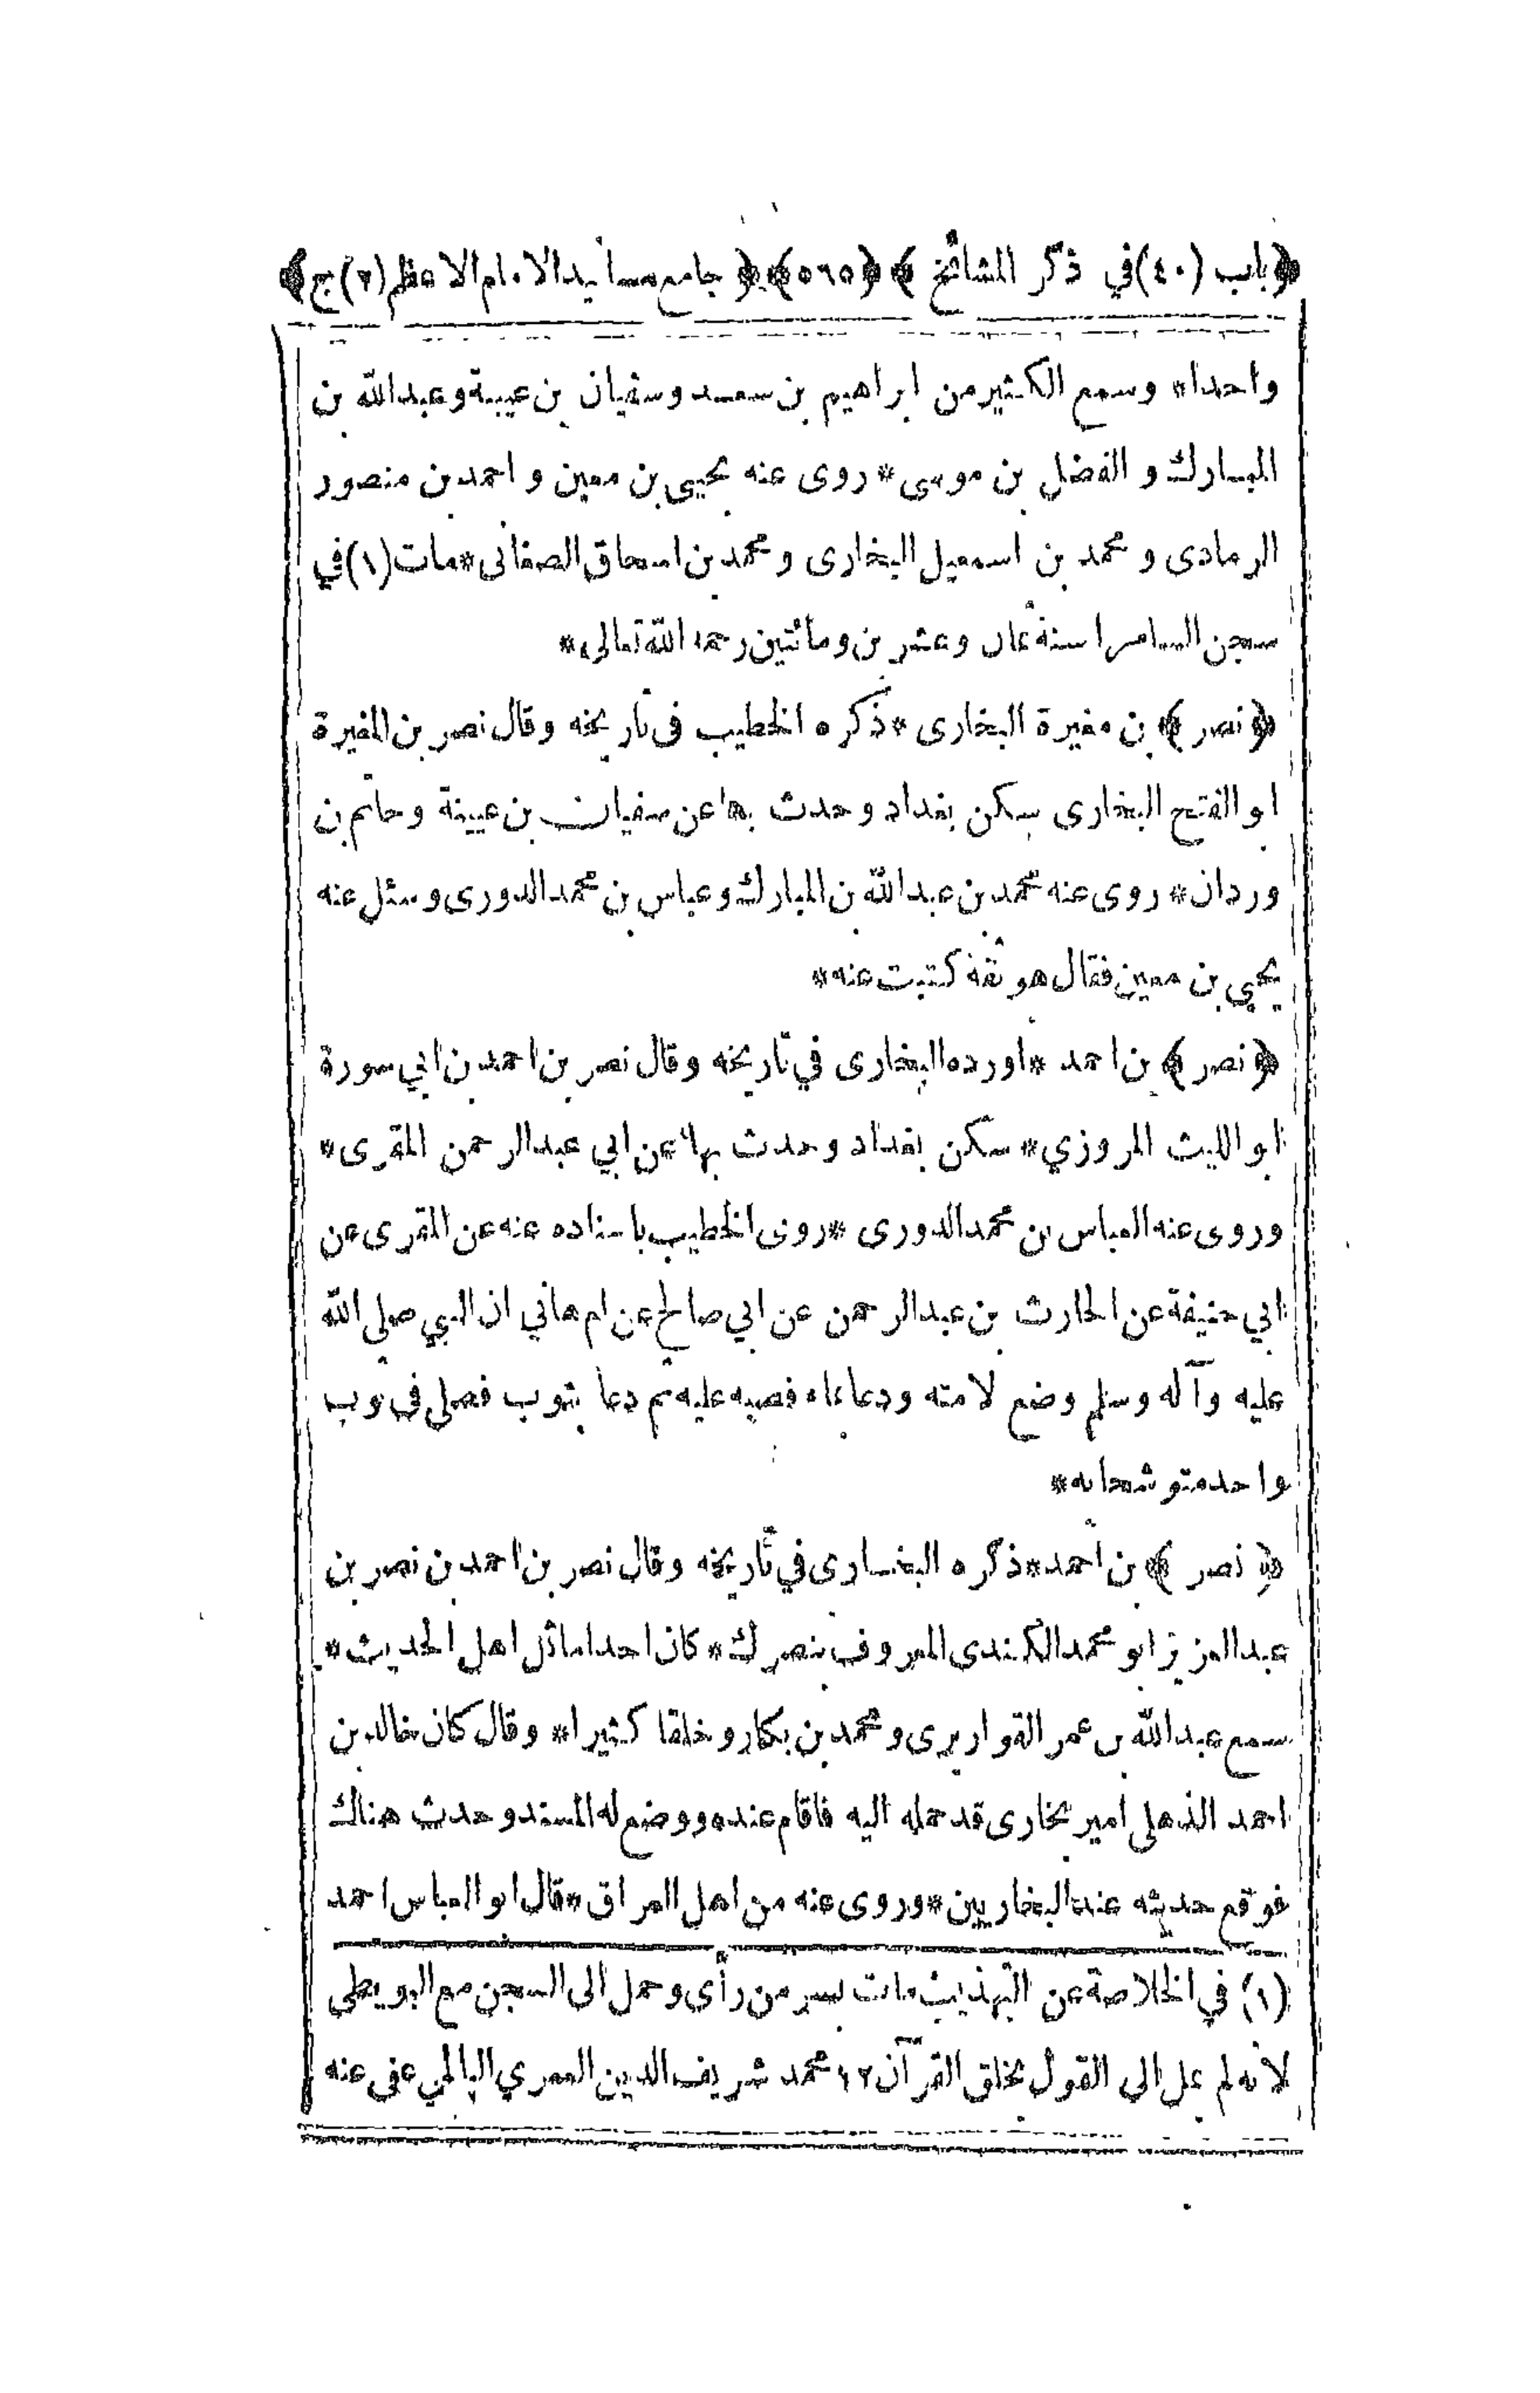 ﴿باب (٤٠) في ذكر المشائخ﴾ ﴿٥٦٥﴾ ﴿جامع مسانيد الامام الاعظم (٢) ج﴾
واحدا* وسمع الكثير من ابراهيم بن سعد وسفيان بن عيينة وعبدالله بن
المبارك و الفضل بن موسى* روى عنه يحيى بن معين و احمد بن منصور
الرمادى و محمد بن اسمعيل البخارى و محمد بن اسحاق الصغانى* مات (١) في
سجن السامرا سنة ثمان وعشرين ومائتين رحمه الله تعالى*
﴿نصر﴾ بن مغيرة البخارى* ذكره الخطيب فى تاريخه وقال نصر بن المغيرة
ابو الفتح البخارى سكن بغداد وحدث بها عن سفيان بن عيينة وحاتم بن
وردان* روى عنه محمد بن عبدالله بن المبارك وعباس بن محمد الدورى وسئل عنه
يحيى بن معين فقال هو ثقة كتبت عنه*
﴿نصر﴾ بن احمد* اورده البخارى في تاريخه وقال نصر بن احمد بن ابي سورة
ابو الليث المروزي* سكن بغداد وحدث بها عن ابي عبد الرحمن المقرى*
وروى عنه العباس بن محمد الدورى* روى الخطيب باسناده عنه عن المقرى عن
ابي حنيفة عن الحارث بن عبد الرحمن عن ابي صالح عن ام هاني ان النبي صلى الله
عليه وآله وسلم وضع لامته ودعا بماء فصبه عليه ثم دعا بثوب فصلى فى ثوب
واحد متوشحا به*
﴿نصر﴾ بن احمد* ذكره البخارى في تاريخه وقال نصر بن احمد بن نصر بن
عبد العزيز ابو محمد الكندى المعروف بنصرك* كان احد اماثل اهل الحديث*
سمع عبدالله بن عمر القواريرى و محمد بن بكار وخلقا كثيرا* وقال كان خالد بن
احمد الذهلى امير بخارى قد حمله اليه فاقام عنده ووضع له المسند وحدث هناك
فوقع حديثه عند البخاريين* وروى عنه من اهل العراق* قال ابو العباس احمد
(١) في الخلاصة عن التهذيب مات بسر من رأى وحمل الى السجن مع البويطى
لانه لم يمل الى القول بخلق القرآن ١٢ محمد شريف الدين العمري البالمي عفى عنه